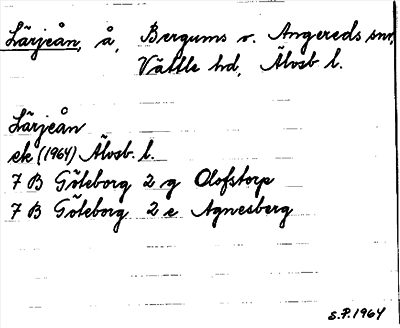 Lärjeån, å, Bergums o. Angereds snr,
Vättle hd, Älvsb l.
Lärjeån
ek (1964) Älvsb. l.
7 B Göteborg 2 g Olofstorp
7 B Göteborg 2 e Agnesberg
S.P. 1964